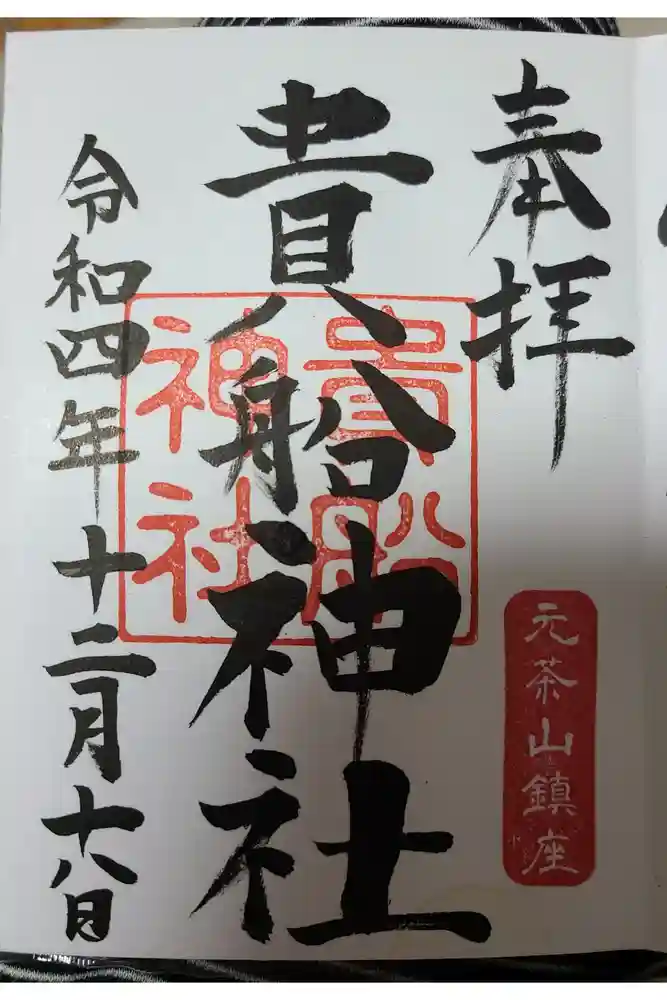 奉拝
元茶山鎮座
貴船神社
貴船
神社
令和四年十二月十八日